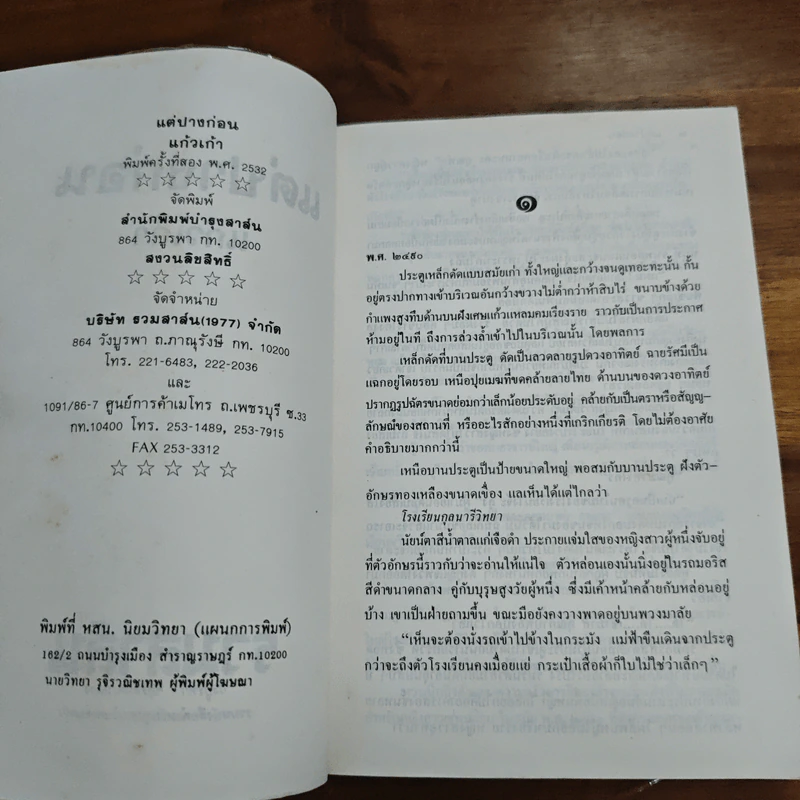 แต่ปางก่อน
แก้วเก้า
พิมพ์ครั้งที่สอง พ.ศ. 2532
☆ ☆ ☆ ☆ ☆
จัดพิมพ์
สำนักพิมพ์บำรุงสาส์น
864 วังบูรพา กท. 10200
สงวนลิขสิทธิ์
☆ ☆ ☆ ☆ ☆
จัดจำหน่าย
บริษัท รวมสาส์น(1977) จำกัด
864 วังบูรพา ถ.ภาณุรังษี กท. 10200
โทร. 221-6483, 222-2036
และ
1091/86-7 ศูนย์การค้าเมโทร ถ.เพชรบุรี ซ.33
กท.10400 โทร. 253-1489, 253-7915
FAX 253-3312
☆ ☆ ☆ ☆ ☆
พิมพ์ที่ หสน. นิยมวิทยา (แผนกการพิมพ์)
162/2 ถนนบำรุงเมือง สำราญราษฎร์ กท.10200
นายวิทยา รุจิรวณิชเทพ ผู้พิมพ์ผู้โฆษณา
๑
พ.ศ. ๒๔๙๐
ประตูเหล็กดัดแบบสมัยเก่า ทั้งใหญ่และกว้างจนดูเทอะทะนั้น กั้น
อยู่ตรงปากทางเข้าบริเวณอันกว้างขวางไม่ต่ำกว่าห้าสิบไร่ ขนาบข้างด้วย
กำแพงสูงทึบด้านบนฝังเศษแก้วแหลมคมเรียงราย ราวกับเป็นการประกาศ
ห้ามอยู่ในที ถึงการล่วงล้ำเข้าไปในบริเวณนั้น โดยพลการ
เหล็กดัดที่บานประตู ดัดเป็นลวดลายรูปดวงอาทิตย์ ฉายรัศมีเป็น
แฉกอยู่โดยรอบ เหนือปุยเมฆที่ขดคล้ายลายไทย ด้านบนของดวงอาทิตย์
ปรากฏรูปฉัตรขนาดย่อมกว่าเล็กน้อยประดับอยู่ คล้ายกับเป็นตราหรือสัญญ-
ลักษณ์ของสถานที่ หรืออะไรสักอย่างหนึ่งที่เกริกเกียรติ โดยไม่ต้องอาศัย
คำอธิบายมากกว่านี้
เหนือบานประตูเป็นป้ายขนาดใหญ่ พอสมกับบานประตู ฝังตัว-
อักษรทองเหลืองขนาดเขื่อง แลเห็นได้แต่ไกลว่า
โรงเรียนกุลนารีวิทยา
นัยน์ตาสีน้ำตาลแก่เจือดำ ประกายแจ่มใสของหญิงสาวผู้หนึ่งจับอยู่
ที่ตัวอักษรนี้ราวกับว่าจะอ่านให้แน่ใจ ตัวหล่อนเองนั้นนั่งอยู่ในรถมอริส
สีดำขนาดกลาง คู่กับบุรุษสูงวัยผู้หนึ่ง ซึ่งมีเค้าหน้าคล้ายกับหล่อนอยู่
บ้าง เขาเป็นฝ่ายถามขึ้น ขณะมือยังคงวางพาดอยู่บนพวงมาลัย
“เห็นจะต้องนั่งรถเข้าไปข้างในกระมัง แม่ฟ้าขืนเดินจากประตู
กว่าจะถึงตัวโรงเรียนคงเมื่อยแย่ กระเป๋าเสื้อผ้าก็ใบไม่ใช่ว่าเล็กๆ”